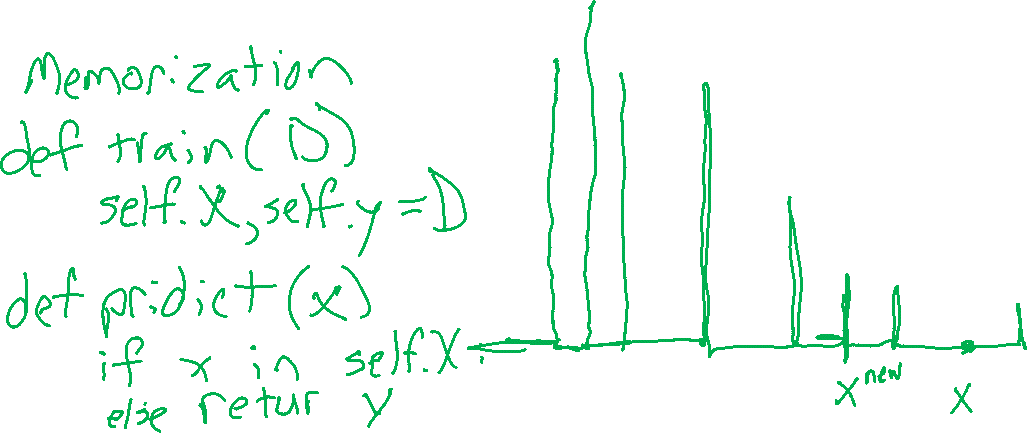 Memorization
def train(D)
self.X, self.y = D
def pridict(x)
if x in self.X:
else retur y
x new
x